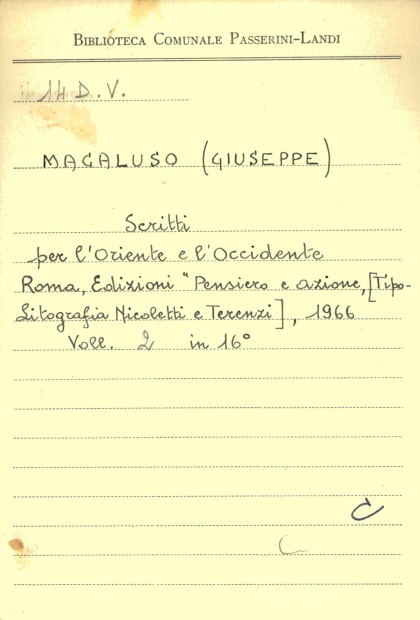 BIBLIOTECA COMUNALE PASSERINI-LANDI
14 D.V.
MAGALUSO (GIUSEPPE)
Scritti
per l'Oriente e l'Occidente
Roma, Edizioni "Pensiero e azione, [Tipo-
Litografia Nicoletti e Terenzi], 1966
Voll. 2 in 16°
C